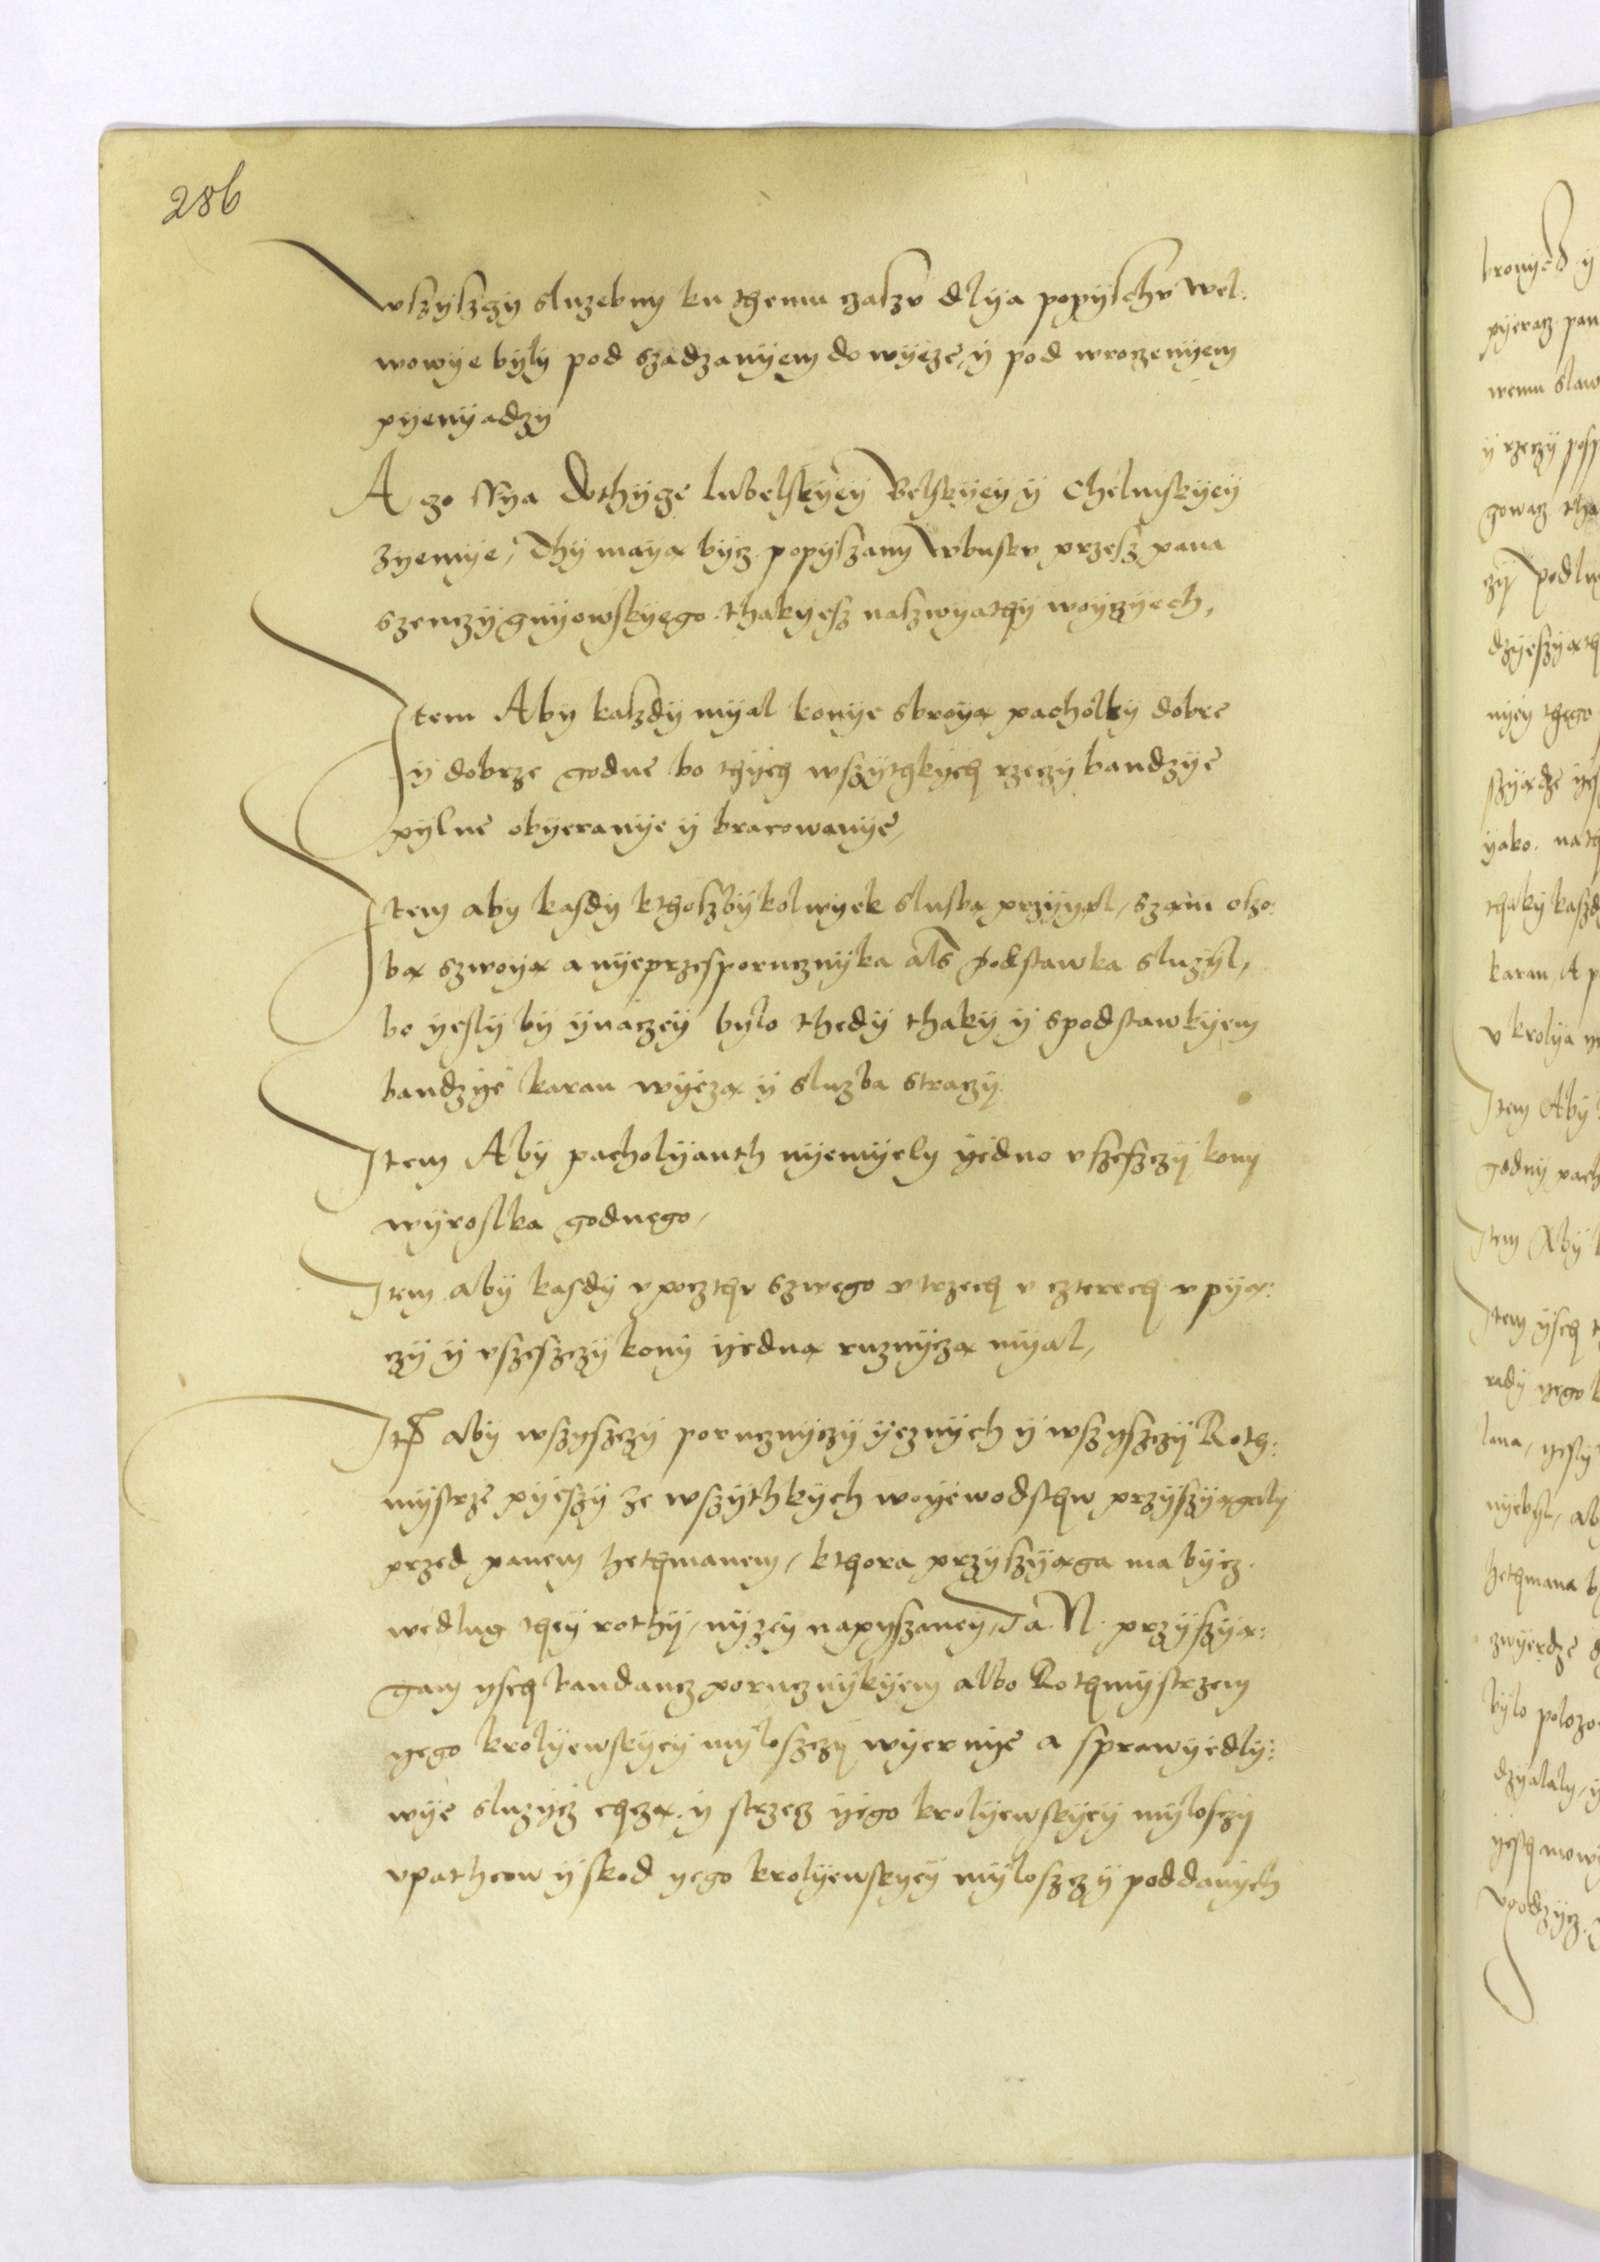 286
wszyszczy sluzebny ku themu czaszv dlya popyschv wel:
wowye byly pod szadzanyem do wyeze, y pod wroczenyem
pyenyadzy
A czo ssya dothycze lubelskyey Belskyey y Chelmskyey
zyemye, Thy mayą bycz popyszany w busku przesz pana
szenczygnyowskyego thakyesz naszwyathy woyczyech,
Item Aby kaszdy myal konye sbroyą pacholky dobre
y dobrze godne bo thych wszythkych rzeczy bandzye
pylne obyeranye y bracowanye,
Item aby kasdy kthoszbykolwyek slusbą przyyąl, szam oszo:
bą szwoyą a nyeprzesporucznyka als podstawka sluzyl,
bo yesly by ynaczey bylo thedy thaky y spodstawkyem
bandzye karan wyezą y sluzba straczy.
Item Aby pacholyanth nyemyely yedno v szeszczy kony
wyrostka godnego,
Item aby kasdy v poczthv szwego v trzech v czterech v pyą:
czy y v szeszczy kony yedną rucznyczą myal,
Item aby wszyszczy porucznyczy yezdnych y wszyszczy Roth:
mystrze pyeszy ze wszythkych woyewodsthw przyszyągaly
przed panem hethmanem, kthora przyszyąga ma bycz
wedlug they rothy, nyzey napyszaney, Ja N. przyszyą:
gam ysch bandancz porucznykyem albo Rothmystrzem
yego krolyewskyey myloszczy wyernye a sprawyedly:
wye sluzycz chczą y strzecz yego krolyewskyey mylosczy
vpathrow y skod yego krolyewskyey myloszczy poddanych